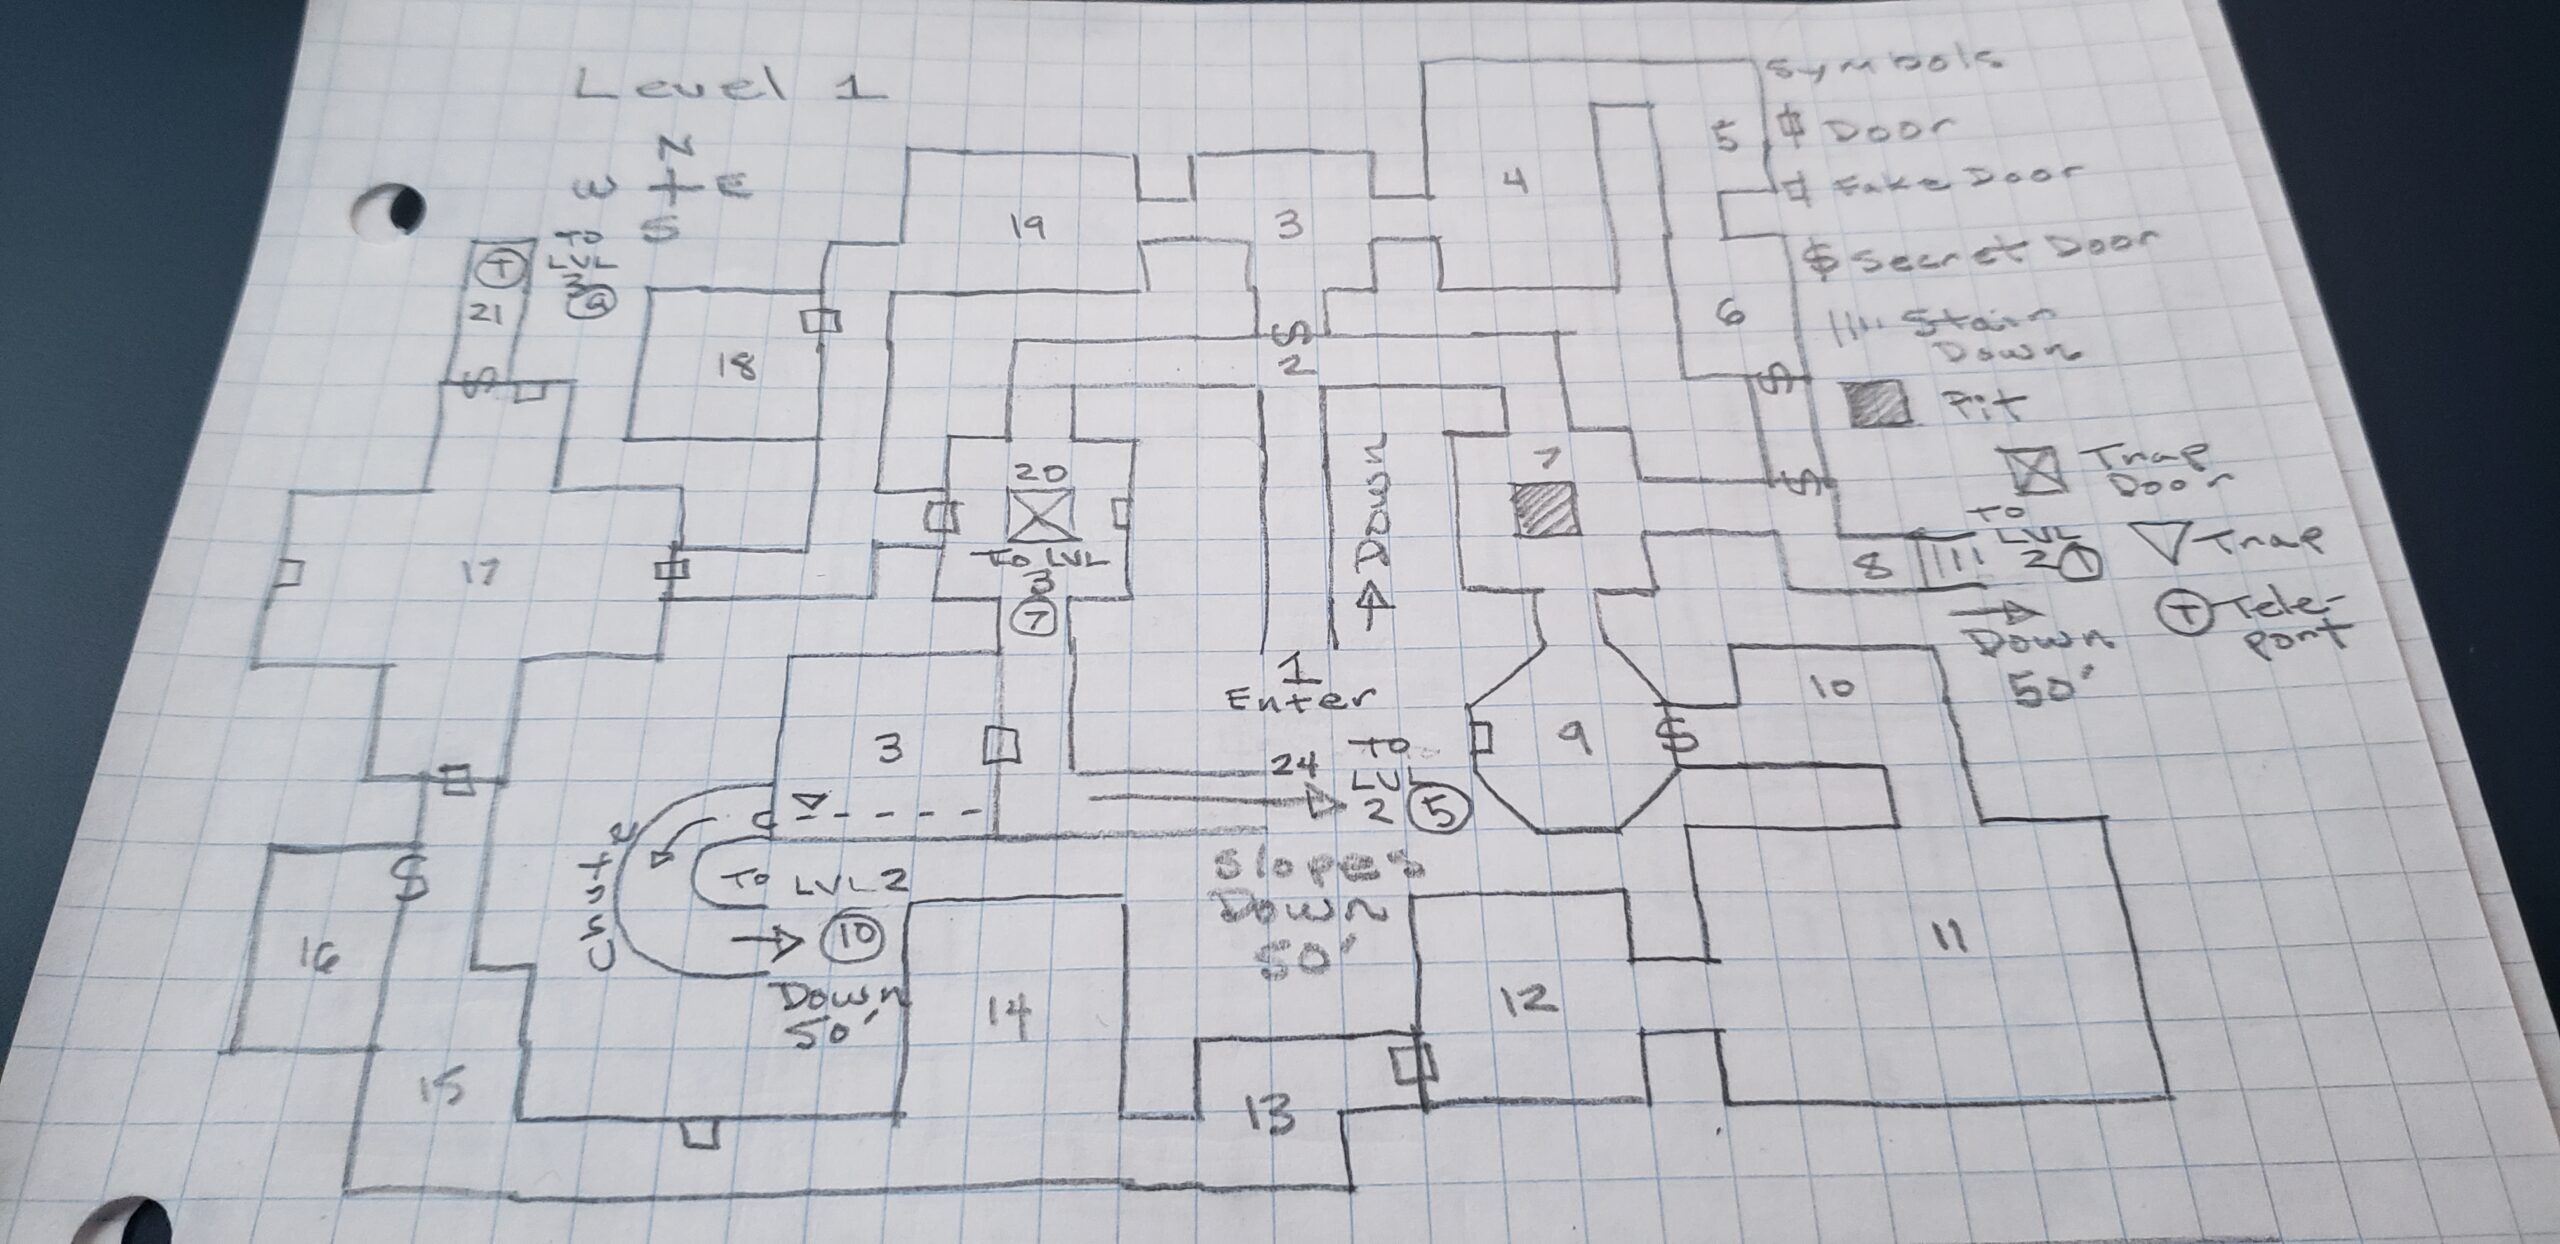 Level 1
N
W E
S
Symbols
Door
Fake Door
$ Secret Door
Stair
Down
Pit
Trap
Door
Trap
T Tele-
port
T
TO
LVL
3
9
21
S
19
3
4
5
18
S
2
6
S
S
20
To LVL
3
7
Down
7
8
TO
LVL
2 1
Down
50'
17
1
Enter
3
24
TO
LVL
2 5
9
$
10
C
Chute
To LVL 2
10
Down
50'
Slopes
Down
50'
$
16
14
12
11
15
13